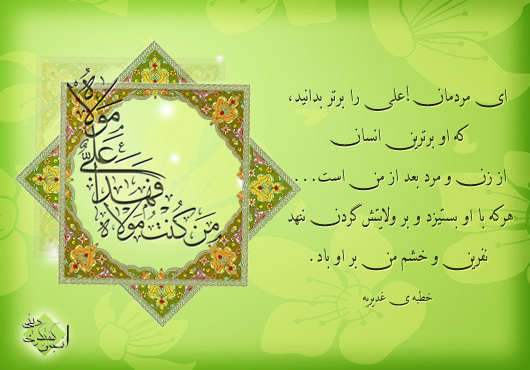 ای مردمان !علی را برتر بدانید،
که او برترین انسان
از زن و مرد بعد از من است...
هرکه با او بستیزد و بر ولایتش گردن ننهد
نفرین و خشم من بر او باد.
خطبه ی غدیریه
من کنت مولاه
فهذا
علیٌّ
مولاه